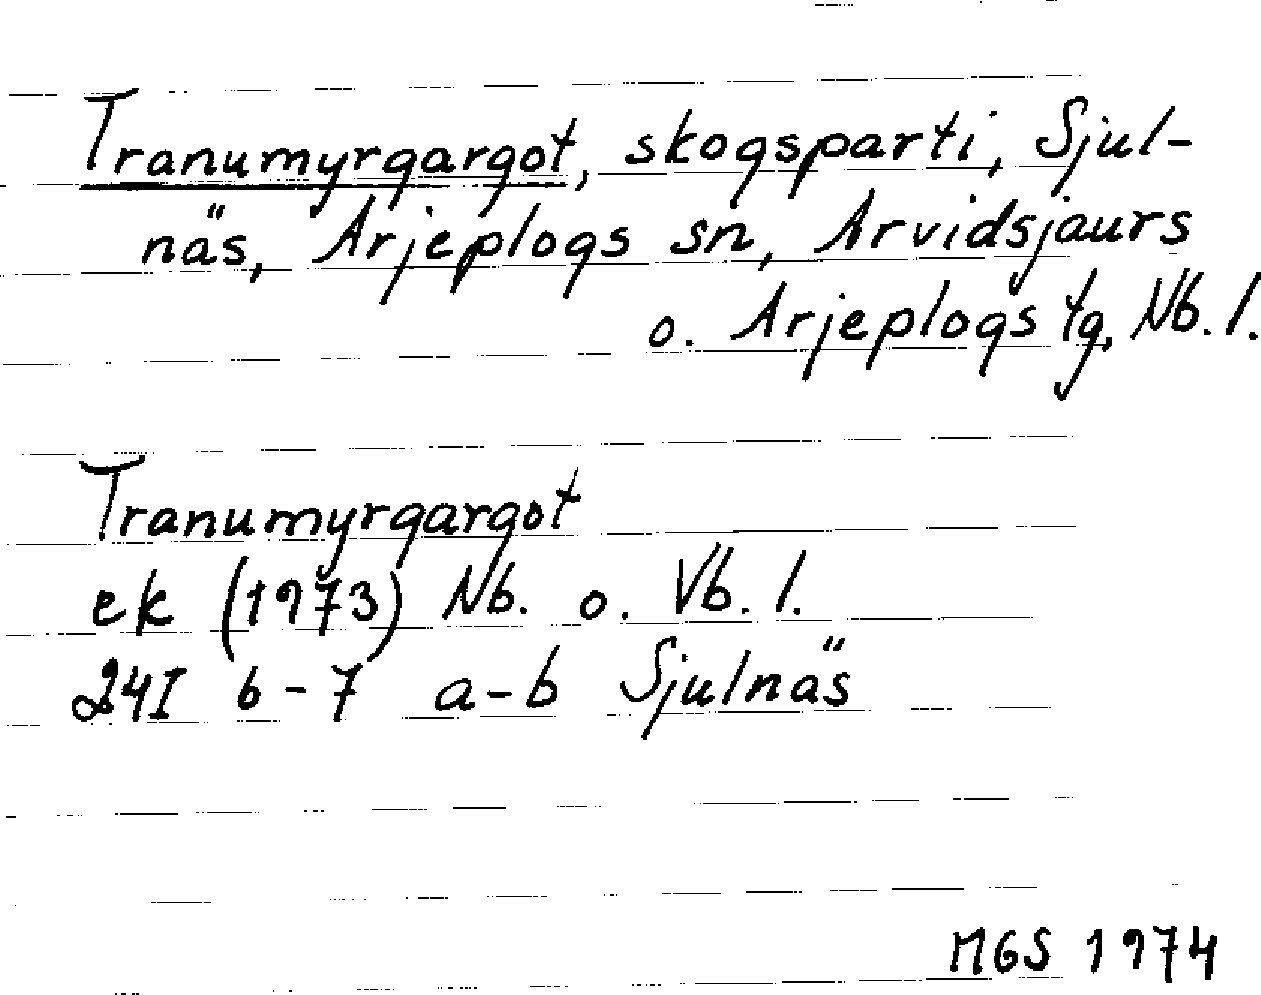 Tranumyrgargot, skogsparti, Sjul-
näs, Arjeplogs sn, Arvidsjaurs
o. Arjeplogs tg, Nb. l.
Tranumyrgargot
ek (1973) Nb. o. Vb. l.
24I 6-7 a-b Sjulnäs
MGS 1974